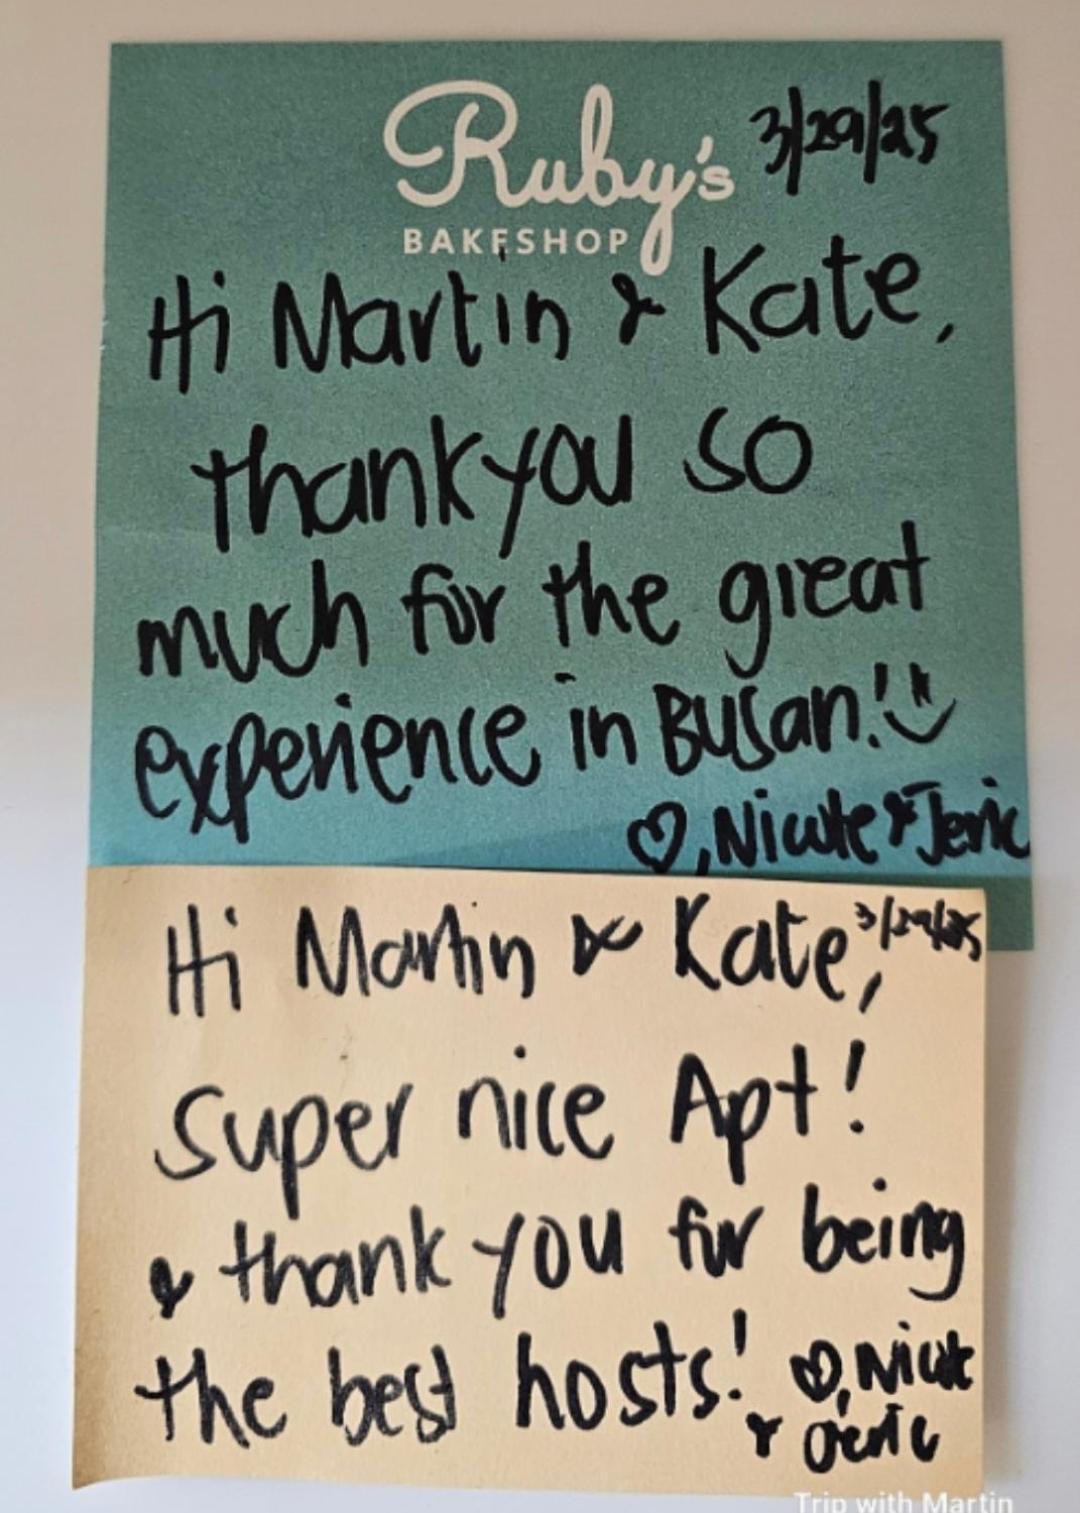 Ruby's
BAKESHOP
3/29/25
Hi Martin & Kate,
thank you so
much for the great
experience in Busan!
♡, Nicole & Jeric
Hi Martin & Kate, 3/29/25
Super nice Apt!
& thank you for being
the best hosts! ♡, Nicole
& Jeric
Trip with Martin